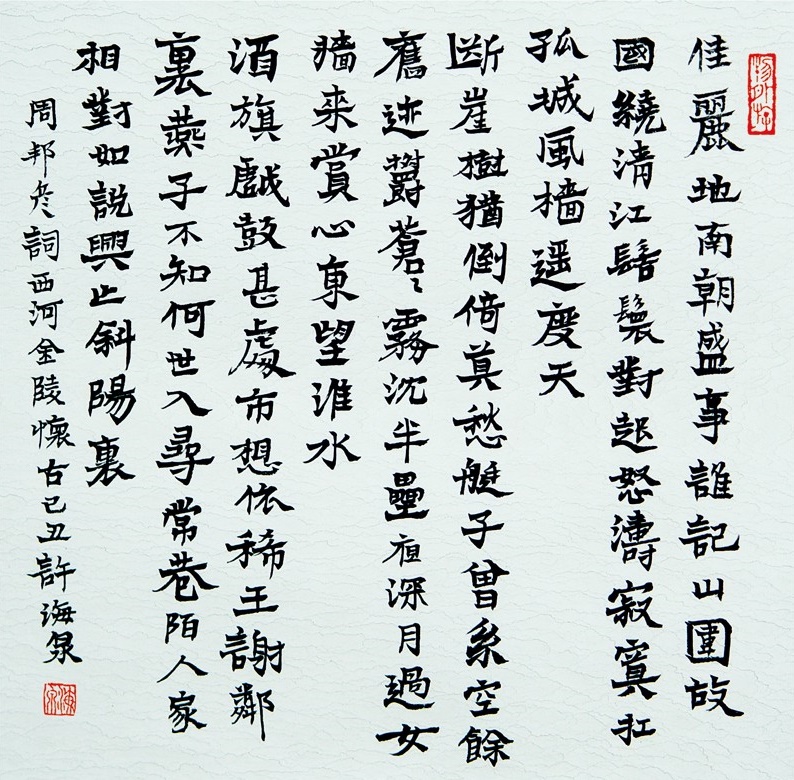 佳麗地南朝盛事誰記山圍故
國繞清江髻鬟對起怒濤寂寞打
孤城風檣遥度天
断崖樹猶倒倚莫愁艇子曾系空餘
舊迹鬱蒼々霧沈半壘夜深月過女
墙来賞心東望淮水
酒旗戲鼓甚處市想依稀王謝鄰
裏燕子不知何世入尋常巷陌人家
相對如說興亡斜陽裏
周邦彦詞西河金陵懷古己丑許海泉